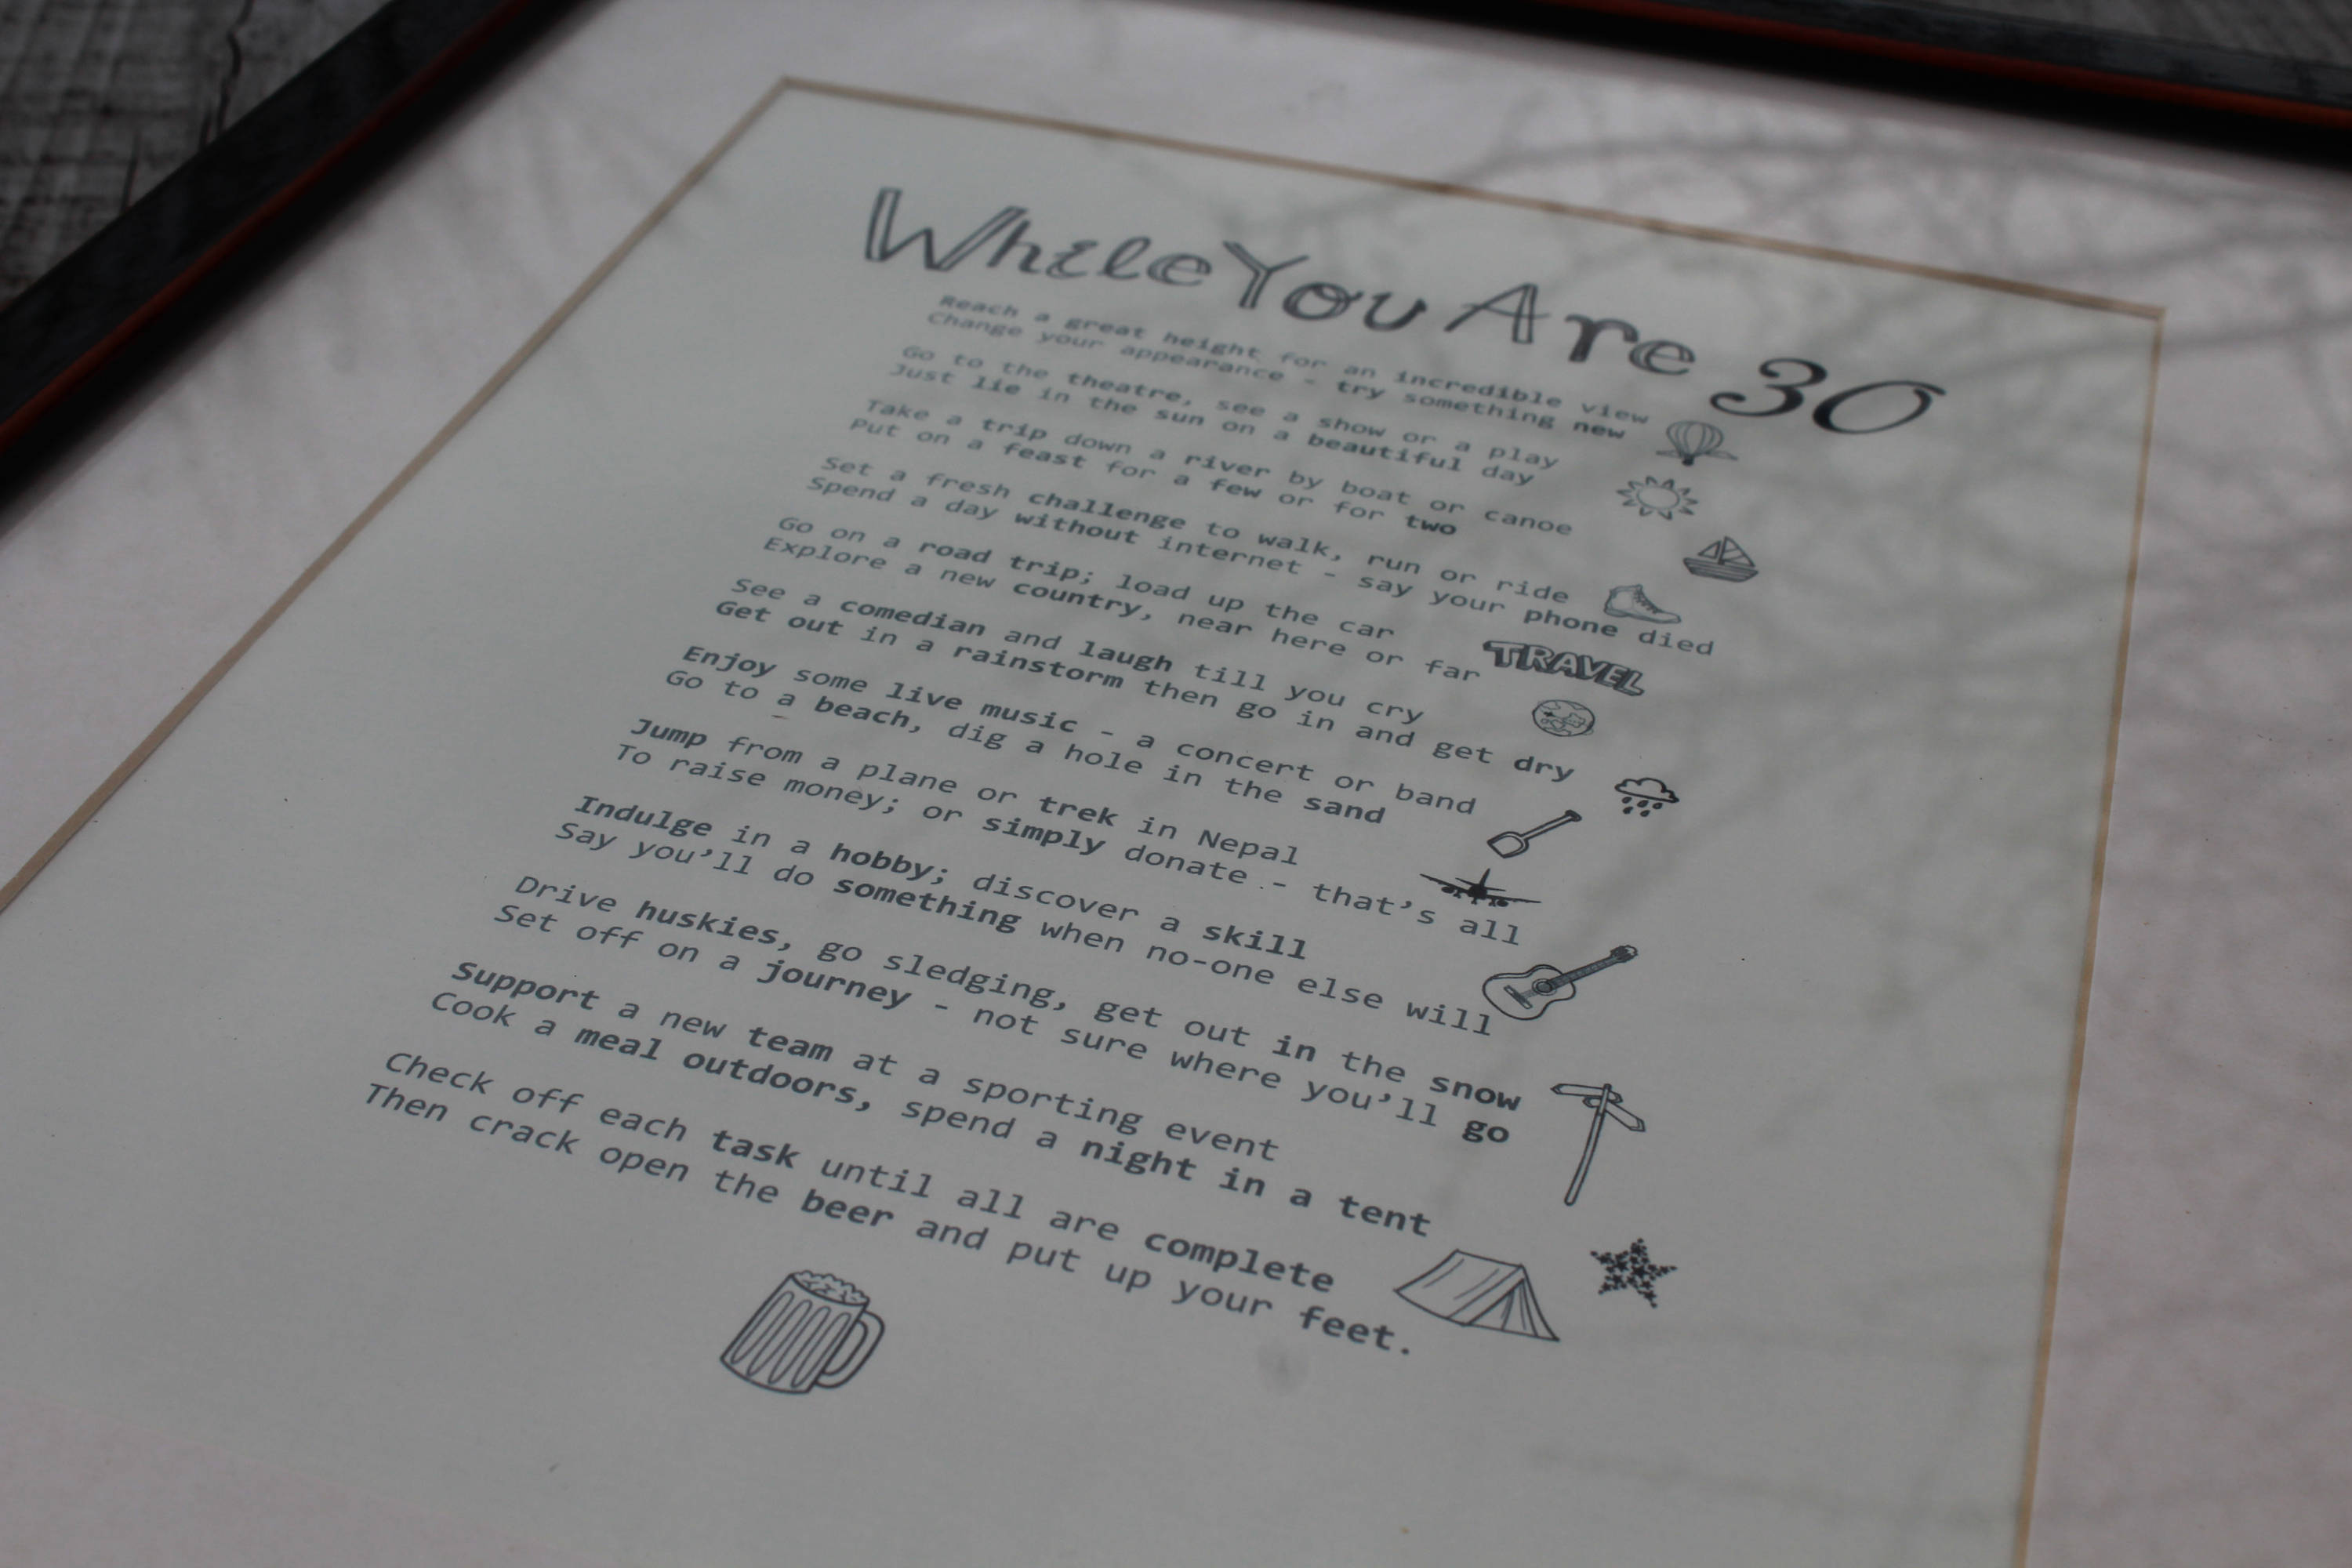 While You Are 30
Reach a great height for an incredible view
Change your appearance - try something new
Go to the theatre, see a show or a play
Just lie in the sun on a beautiful day
Take a trip down a river by boat or canoe
Put on a feast for a few or for two
Set a fresh challenge to walk, run or ride
Spend a day without internet - say your phone died
Go on a road trip; load up the car
Explore a new country, near here or far
TRAVEL
See a comedian and laugh till you cry
Get out in a rainstorm then go in and get dry
Enjoy some live music - a concert or band
Go to a beach, dig a hole in the sand
Jump from a plane or trek in Nepal
To raise money; or simply donate - that's all
Indulge in a hobby; discover a skill
Say you'll do something when no-one else will
Drive huskies, go sledging, get out in the snow
Set off on a journey - not sure where you'll go
Support a new team at a sporting event
Cook a meal outdoors, spend a night in a tent
Check off each task until all are complete
Then crack open the beer and put up your feet.